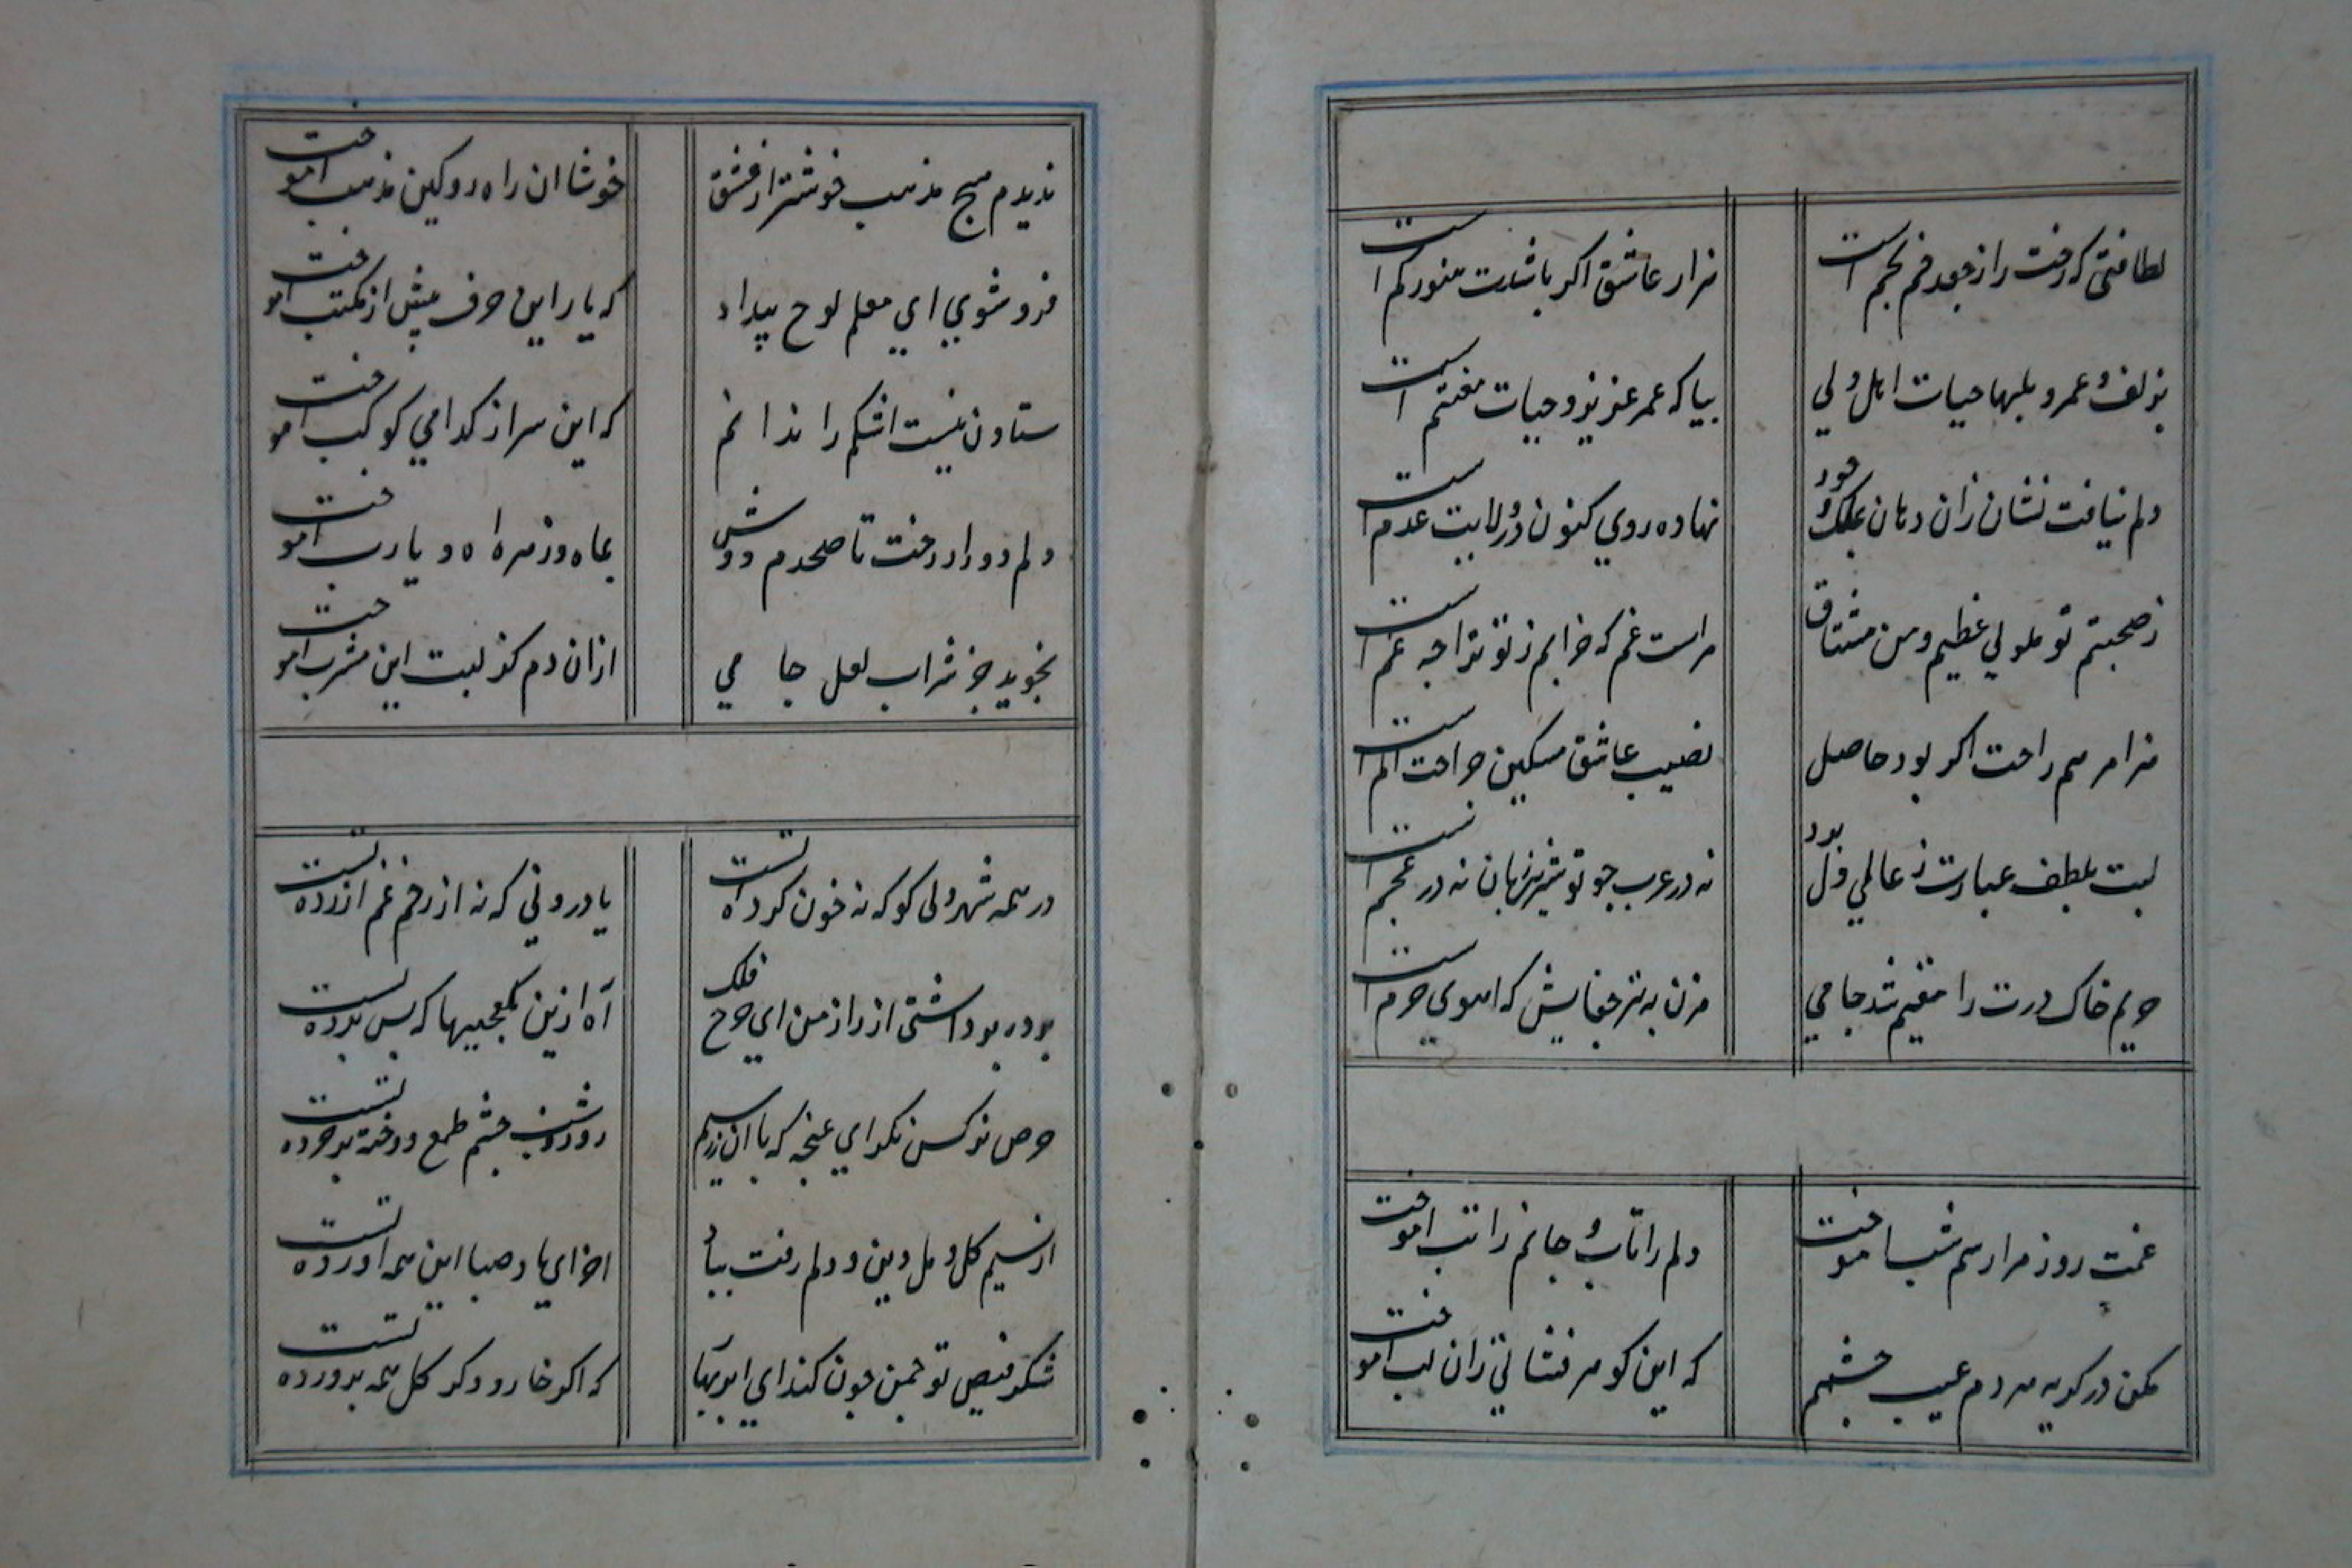 لطافتی که رخت را ز جعد خم بخم است
هزار عاشق اکر باشدت هنوز کم است
بیا که عمر عزیز و حیات مغتنم است
دلم نیافت نشان زان دهان بملک وجود
نهاده روی کنون در ولایت عدم است
ز صحبتم تو ملولی عظیم و من مشتاق
مراست غم که جدایم ز تو ترا چه غم است
ترا مرهم راحت اکر بود حاصل
نصیب عاشق مسکین جراحت الم است
لبت بلطف عبارت ز عالمی دل بود
نه در عرب چو تو شیرین زبان نه در عجم است
حریم خاک درت را مقیم شد جامی
مزن به تیر جفایش که اهوی حرم است
غمت روز مرا رسم شب اموخت
دلم را تاب و جانم را تب اموخت
مکن در کریه مردم عیب چشمم
که این کوهر فشانی زان لب اموخت
ندیدم هیچ مذهب خوشتر از عشق
خوشا ان راه رو کین مذهب اموخت
فرو شوی ای معلم لوح بیداد
که یار این حرف پیش از مکتب اموخت
ستادن نیست اشکم را ندانم
که این سر از کدامی کوکب اموخت
دلم دور از رخت تا صبحدم دوش
بماه و زهره اه و یارب اموخت
نجوید جز شراب لعل جامی
ازان دم کز لبت این مشرب اموخت
در همه شهر دلی کو که نه خون کرده تست
یا درونی که نه از زخم غم ازرده تست
برده بر داشتی از راز من ای چرخ فلک
آه ازین بلعجبیها که پس پرده تست
حرص نرکس نکر ای غنچه که با ان زر و سیم
روز و شب چشم طمع دوخته بر خرده تست
از نسیم کل و مل دین و دلم رفت بباد
اخر ای باد صبا این همه اورده تست
شکر فیض تو چمن چون کند ای ابر بهار
که اکر خار و و کر کل همه پرورده تست